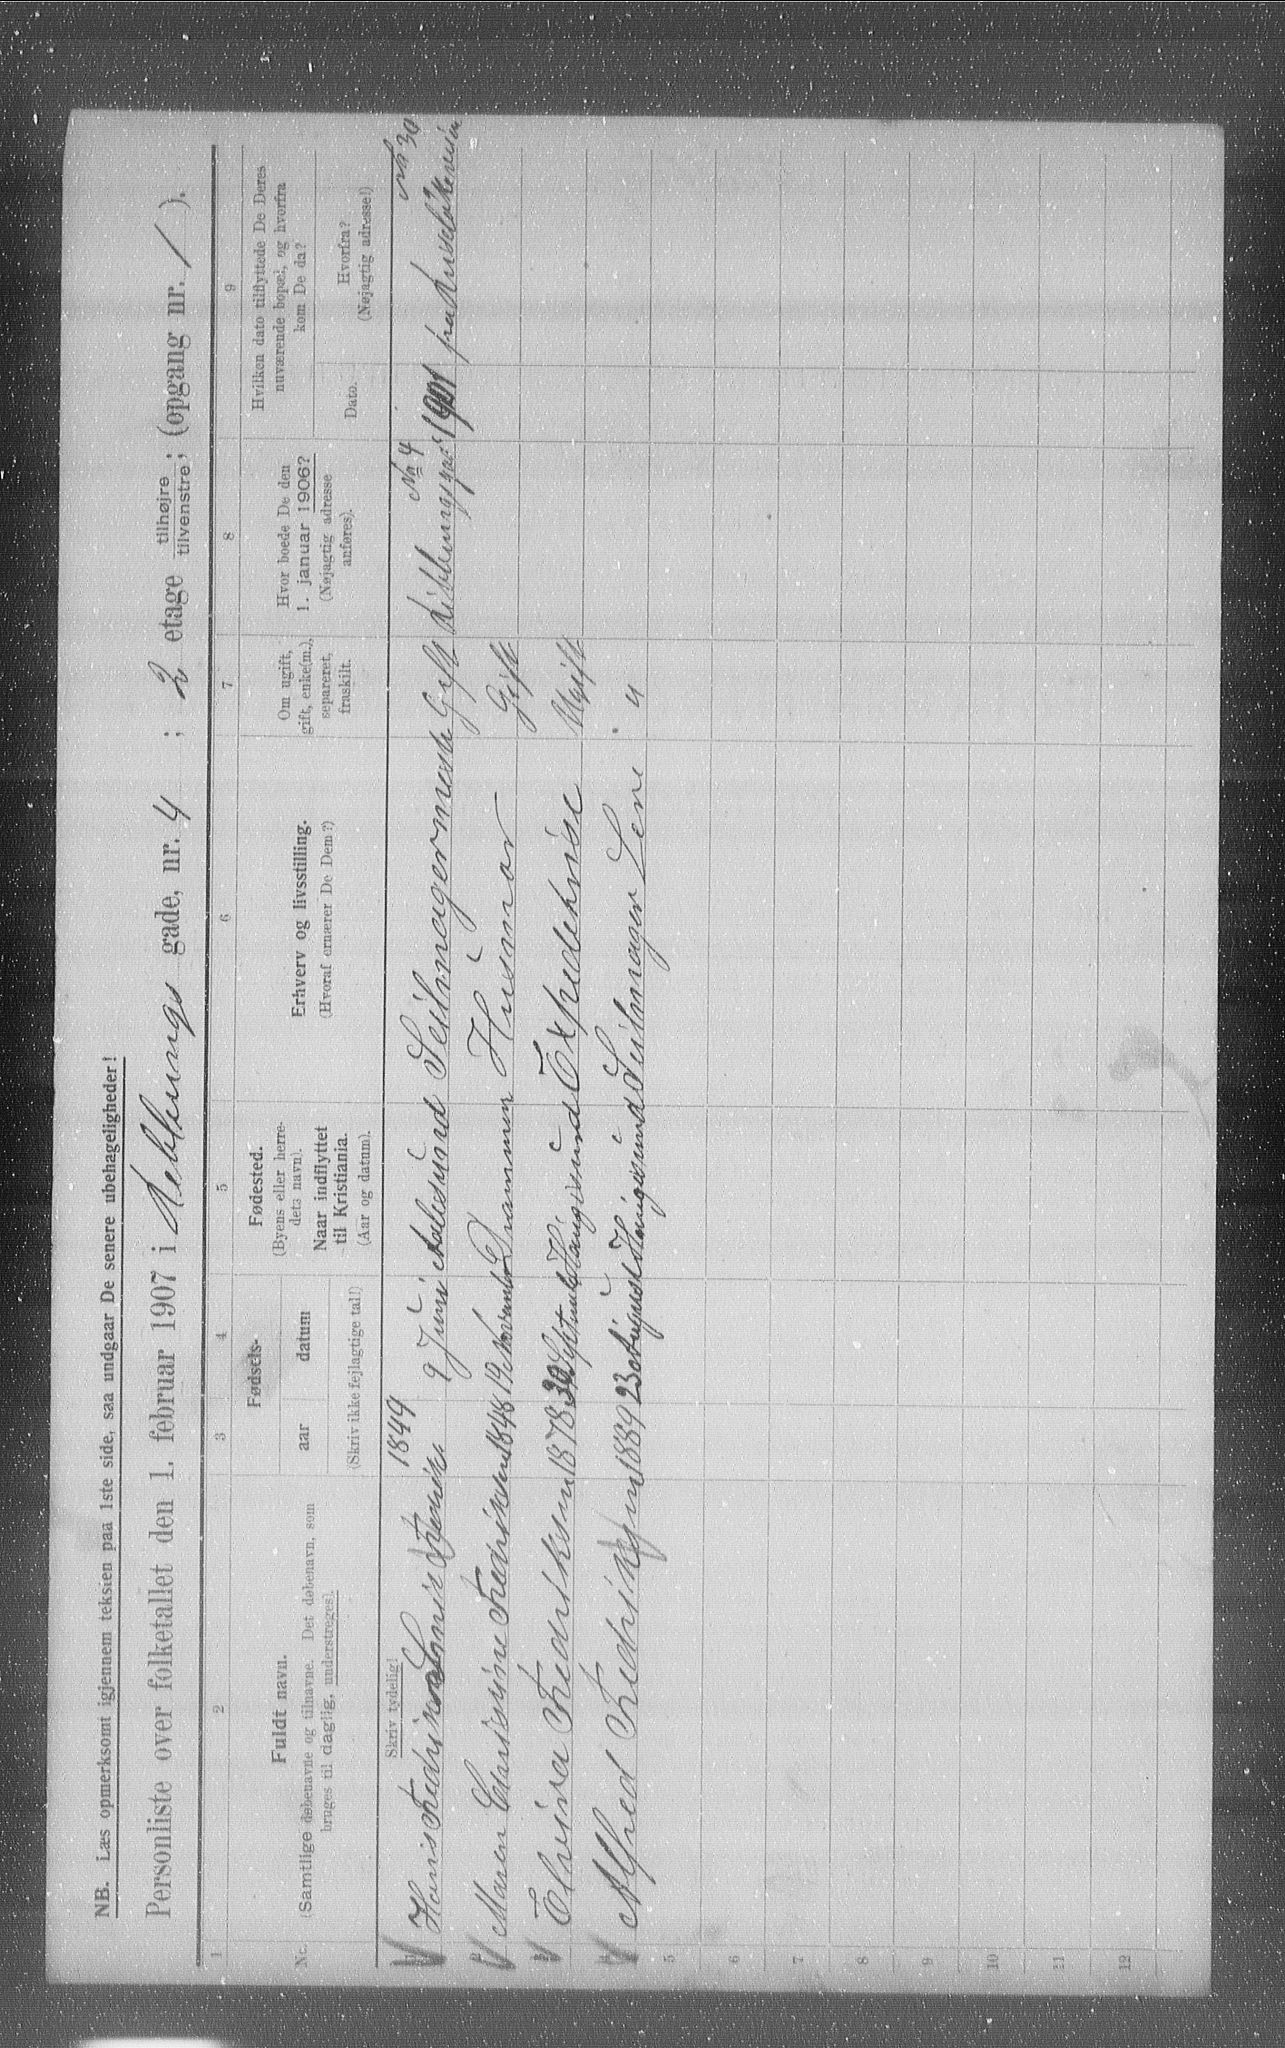 NB. Læs opmerksomt igjennem teksten paa 1ste side, saa undgaar De senere ubehageligheder!
Personliste over folketallet den 1. februar 1907 i gade, nr. 4; 2 etage tilhøjre tilvenstre; (opgang nr. / ).
1 2 3 4 5 6 7 8 9
Nr.
Fuldt navn.
(Samtlige døbenavne og tilnavne. Det døbenavn, som
bruges til daglig, understreges).
Skriv tydelig!
Fødsels-
aar datum
(Skriv ikke fejlagtige tal!)
Fødested.
(Byens eller herre-
dets navn).
Naar indflyttet
til Kristiania.
(Aar og datum).
Erhverv og livsstilling.
(Hvoraf ernærer De Dem?)
Om ugift,
gift, enke(m.),
separeret,
fraskilt.
Hvor boede De den
1. januar 1906?
(Nøjagtig adresse
anføres).
Hvilken dato tilflyttede De Deres
nuværende bopæl, og hvorfra
kom De da?
Dato.
Hvorfra?
(Nøjagtig adresse!)
1849 No 4 No 30
Hans 9 Juni Aalesund Seilmagermester Gift 1901 fra
2 Maren Fredriksen 1848 19 November Drammen Husmor Gift
3 Elvina Fredriksen 1878 30 Haugesund Expeditrise Ugift
4 Alfred Fredriksen 1889 23 August Haugesund Seilmager "
5
6
7
8
9
10
11
12